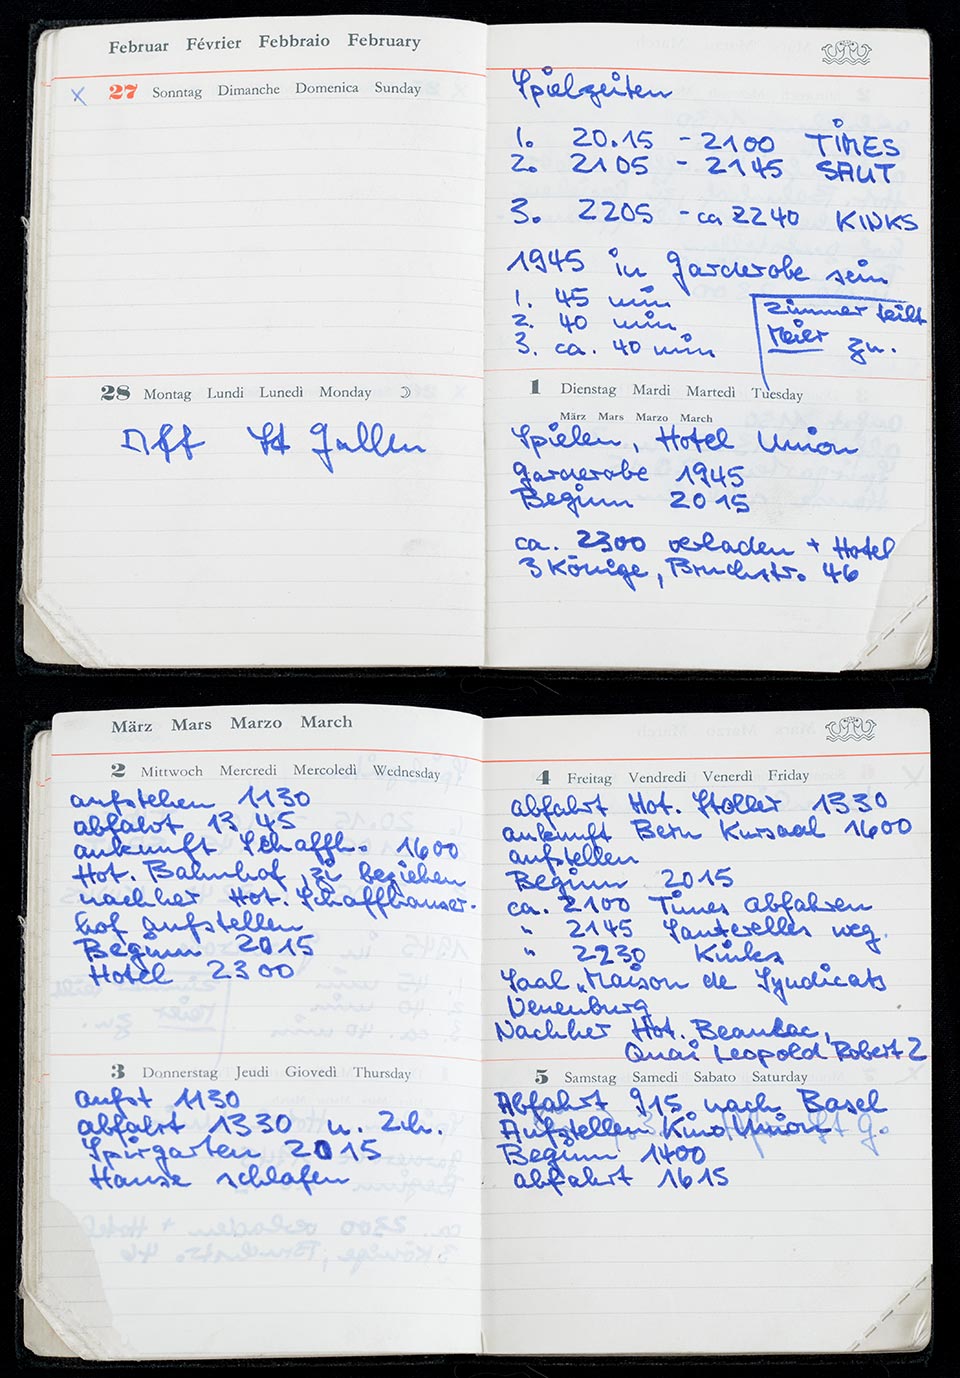 Februar Février Febbraio February
x 27 Sonntag Dimanche Domenica Sunday
28 Montag Lundi Lunedì Monday
Off St Gallen
Spielzeiten
1. 20.15 - 2100 TIMES
2. 2105 - 2145 SAUT
3. 2205 - ca 2240 KINKS
1945 in Garderobe sein
1. 45 min
2. 40 min
3. ca. 40 min
Zimmer teilt
Meier zu.
1 Dienstag Mardi Martedì Tuesday
März Mars Marzo March
Spielen, Hotel Union
Garderobe 1945
Beginn 2015
ca. 2300 verladen + Hotel
3 Könige, Bruchstr. 46
März Mars Marzo March
2 Mittwoch Mercredi Mercoledì Wednesday
aufstehen 1130
abfahrt 13 45
ankunft Schaffh. 1600
Hot. Bahnhof, zi beziehen
nachher Hot. Schaffhauser-
hof aufstellen
Beginn 2015
Hotel 2300
3 Donnerstag Jeudi Giovedì Thursday
aufst 1130
abfahrt 1330 n. Zch.
Spirgarten 2015
Hause schlafen
4 Freitag Vendredi Venerdì Friday
abfahrt Hot. Stoller 1330
ankunft Bern Kursaal 1600
aufstellen
Beginn 2015
ca. 2100 Times abfahren
" 2145 Sauterelles weg.
" 2230 Kinks
Saal "Maison de Syndicats
Neuenburg
Nachher Hot. Beaulac,
Quai Leopold Robert 2
5 Samstag Samedi Sabato Saturday
Abfahrt 915 nach Basel
Aufstellen Kino Union
Beginn 1400
abfahrt 1615